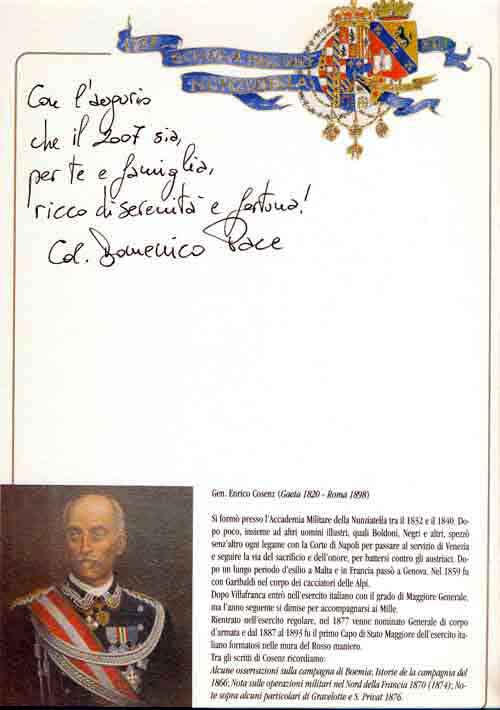 Con l'augurio
che il 2007 sia,
per te e famiglia,
ricco di serenità e fortuna!
Col. Domenico Pace
Gen. Enrico Cosenz (Gaeta 1820 - Roma 1898)
Si formò presso l'Accademia Militare della Nunziatella tra il 1832 e il 1840. Do-
po poco, insieme ad altri uomini illustri, quali Boldoni, Negri e altri, spezzò
senz'altro ogni legame con la Corte di Napoli per passare al servizio di Venezia
e seguire la via del sacrificio e dell'onore, per battersi contro gli austriaci. Do-
po un lungo periodo d'esilio a Malta e in Francia passò a Genova. Nel 1859 fu
con Garibaldi nel corpo dei cacciatori delle Alpi.
Dopo Villafranca entrò nell'esercito italiano con il grado di Maggiore Generale,
ma l'anno seguente si dimise per accompagnarsi ai Mille.
Rientrato nell'esercito regolare, nel 1877 venne nominato Generale di corpo
d'armata e dal 1887 al 1893 fu il primo Capo di Stato Maggiore dell'esercito ita-
liano formatosi nelle mura del Rosso maniero.
Tra gli scritti di Cosenz ricordiamo:
Alcune osservazioni sulla campagna di Boemia; Istorie de la campagnia del
1866; Nota sulle operazioni militari nel Nord della Francia 1870 (1874); No-
te sopra alcuni particolari di Gravelotte e S. Privat 1876.